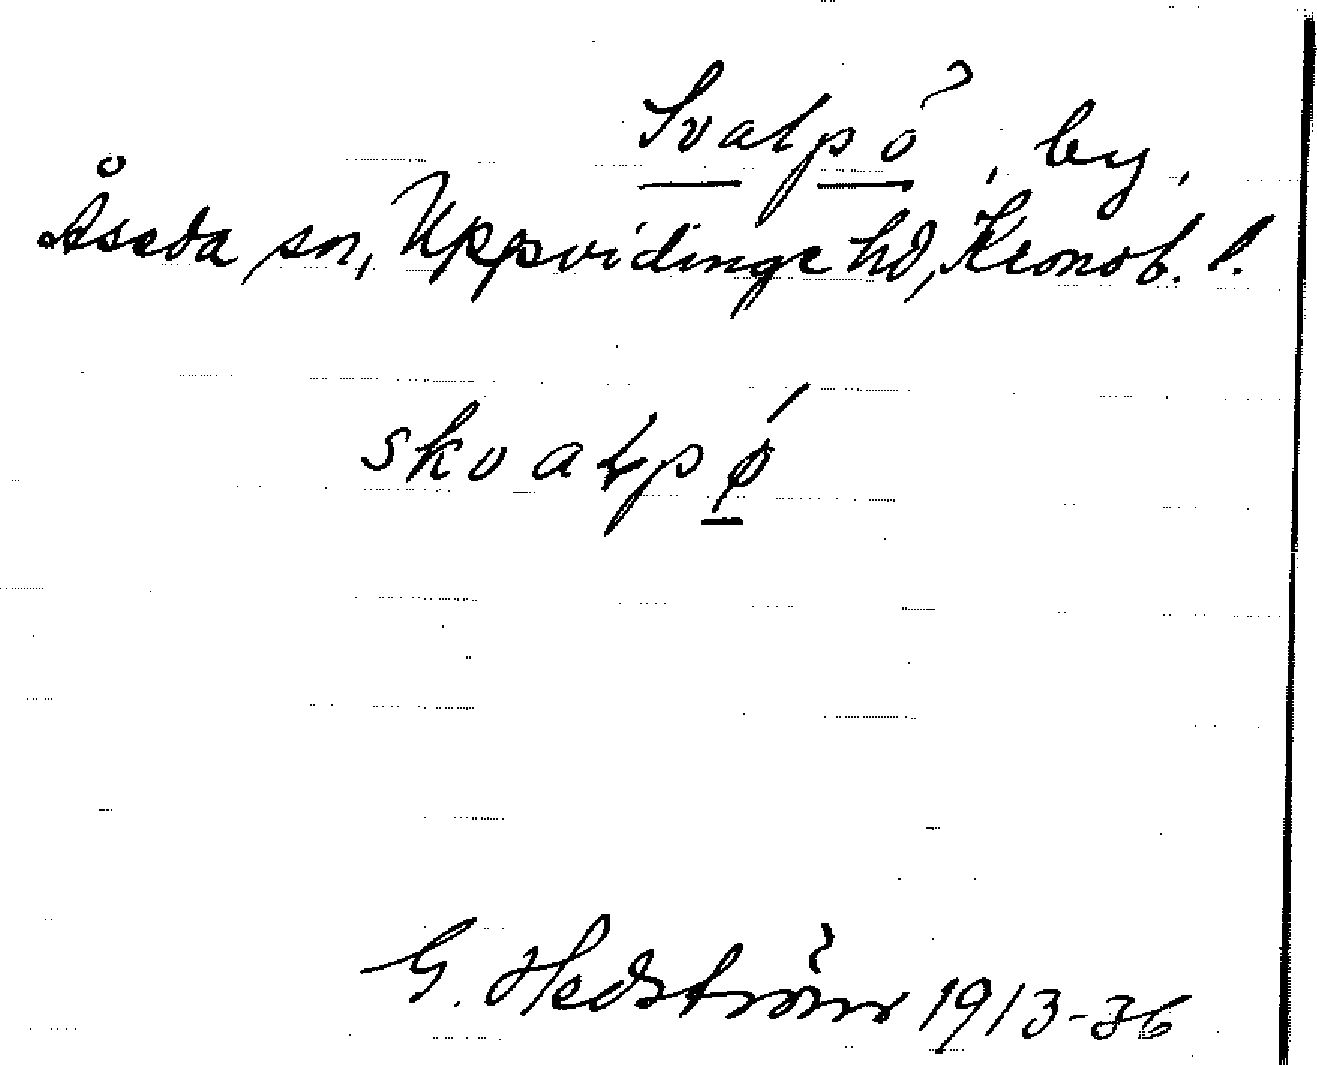 Svalpö, by,
Åseda sn, Uppvidinge hd, Kronob. l.
skvalpø
G. Hedström 1913-36